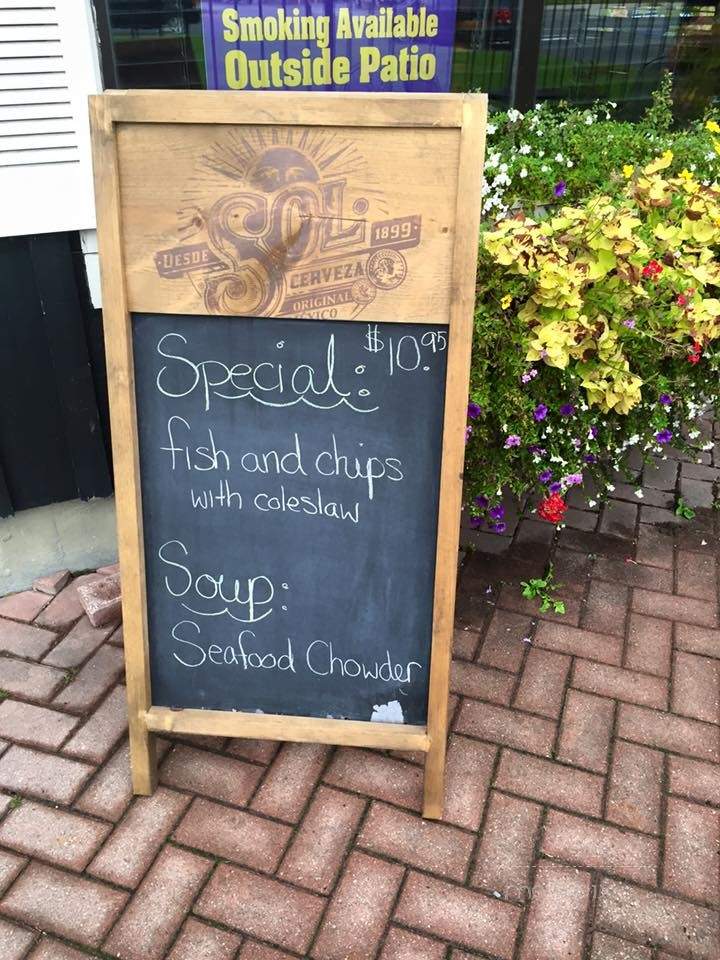 Smoking Available
Outside Patio
SOL
DESDE 1899
CERVEZA
ORIGINAL
Special: $10.95
fish and chips
with coleslaw
Soup:
Seafood Chowder